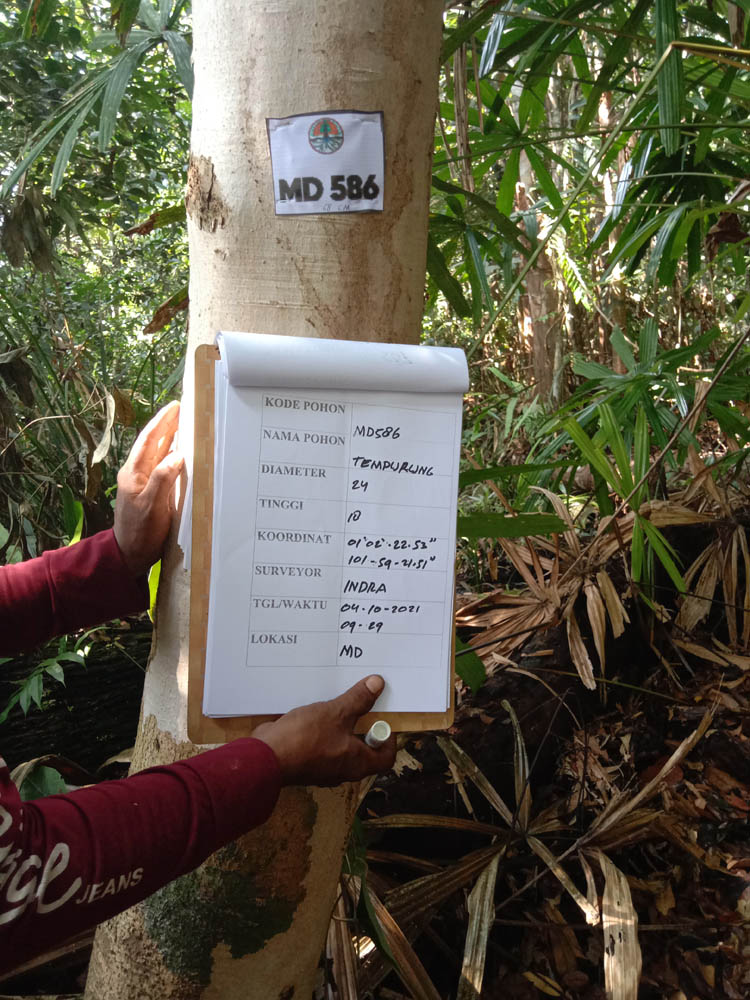 MD 586
KODE POHON MD586
NAMA POHON TEMPURUNG
DIAMETER 24
TINGGI 10
KOORDINAT 01°02'.22.53"
101-59-21.51"
SURVEYOR INDRA
TGL/WAKTU 04-10-2021
09-29
LOKASI MD
JEANS